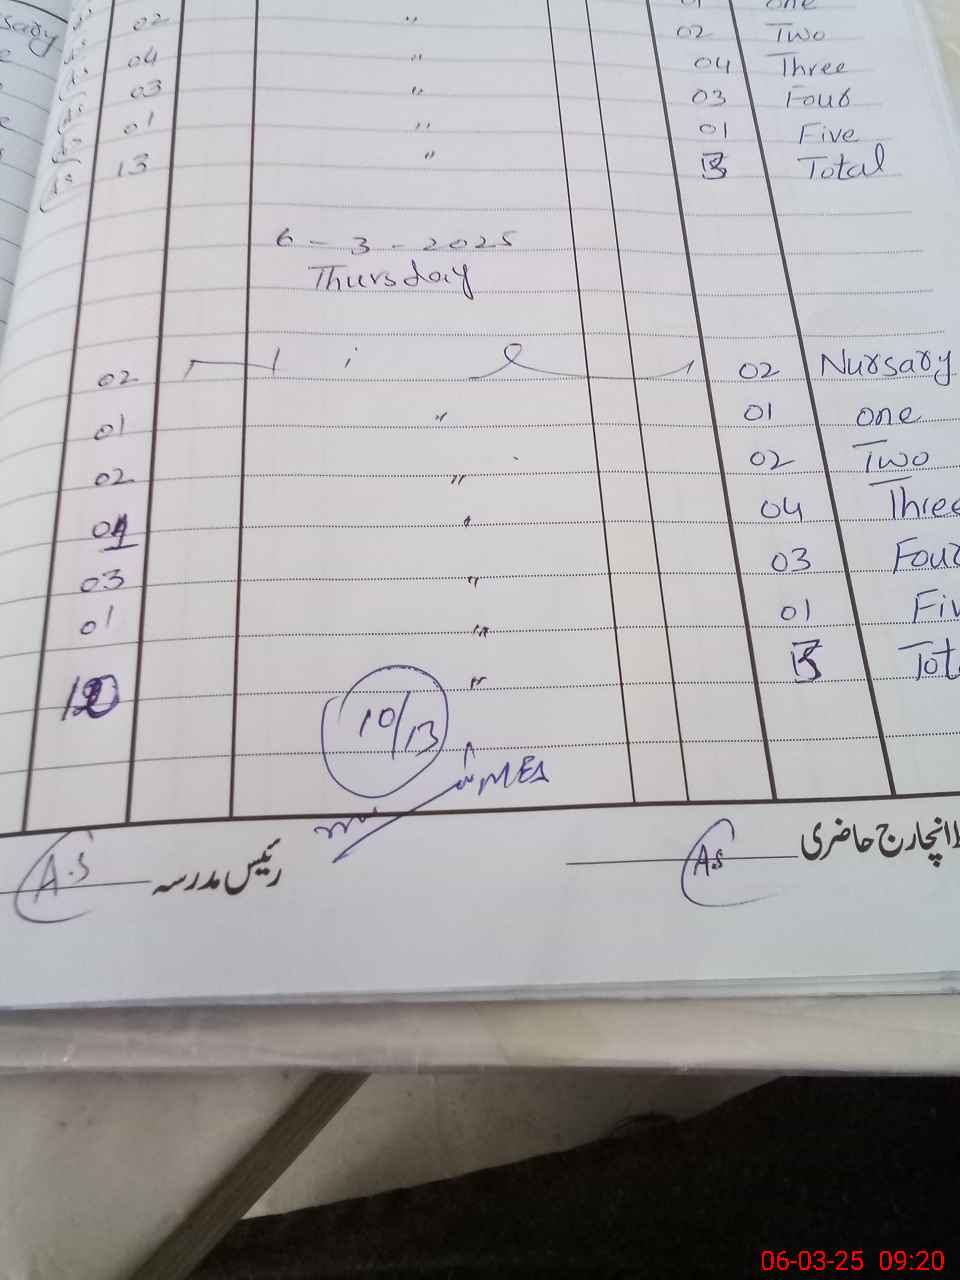 02 " 02 Two
04 " 04 Three
03 " 03 Four
01 " 01 Five
13 " 13 Total
6 - 3 - 2025
Thursday
02 Nil 02 Nursary
01 " 01 one
02 " 02 Two
" 04 Three
03 " 03 Four
01 " 01 Fiv
" 13 Tot
10/13
MEA
A.S رئیس مدرسہ A.S انچارج حاضری
06-03-25 09:20